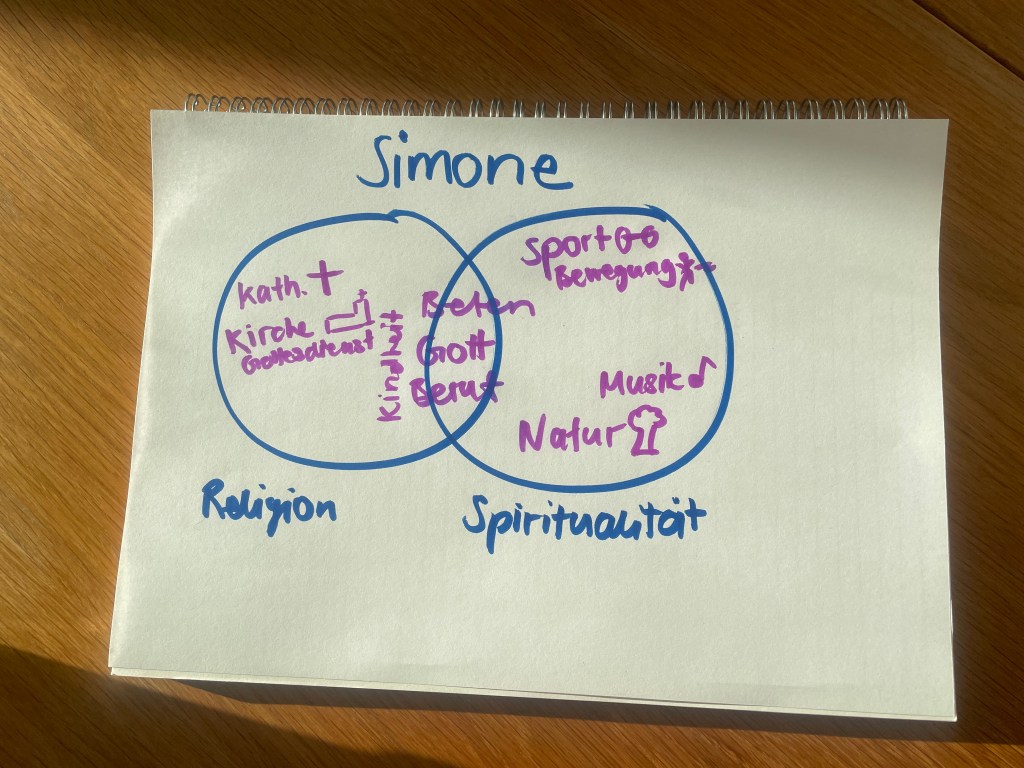 Simone
Kath.
Kirche
Gottesdienst
Kindheit
Beten
Gott
Beruf
Sport
Bewegung
Musik
Natur
Religion
Spiritualität